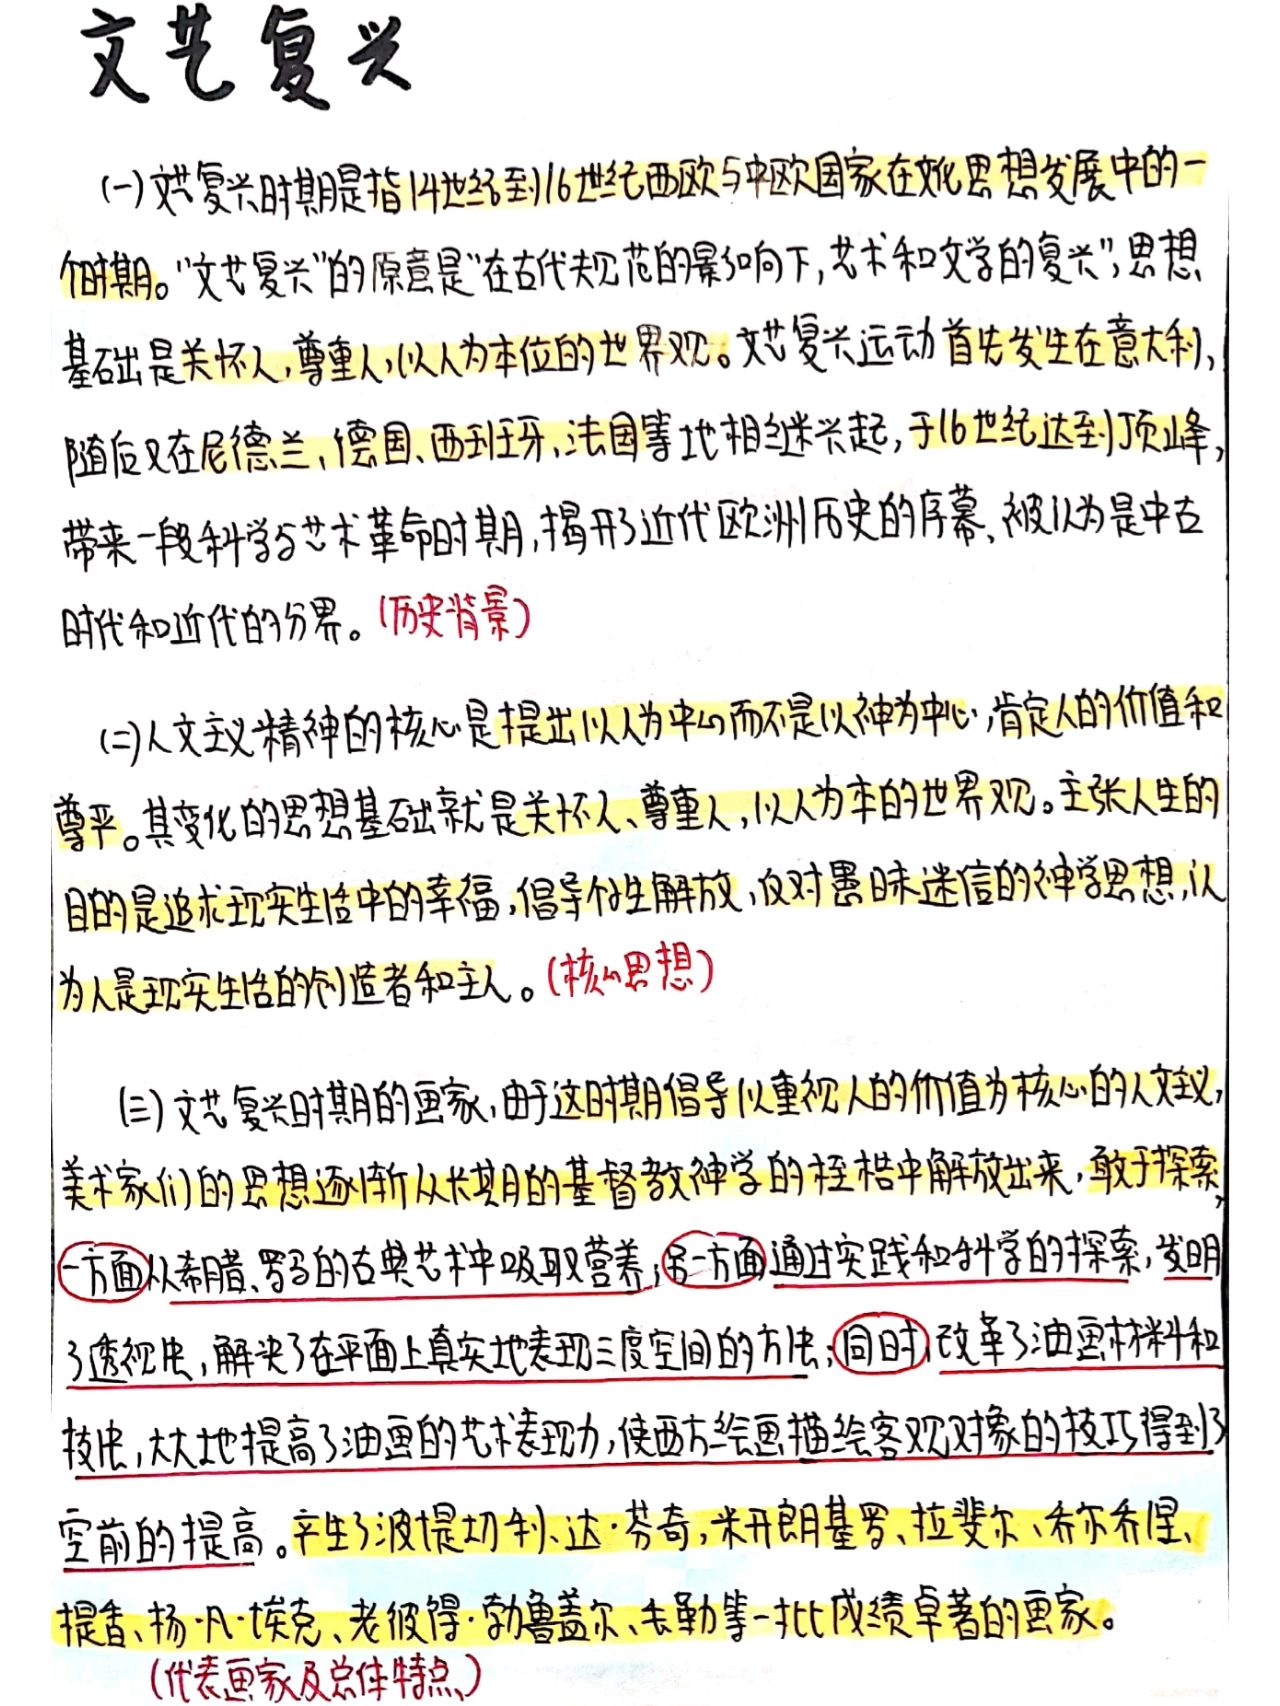 文艺复兴
(一)文艺复兴时期是指14世纪到16世纪西欧与中欧国家在文化思想发展中的一
个时期。“文艺复兴”的原意是“在古代规范的影响下,艺术和文学的复兴”,思想
基础是关怀人,尊重人,以人为本位的世界观。文艺复兴运动首先发生在意大利,
随后又在尼德兰、德国、西班牙、法国等地相继兴起,于16世纪达到顶峰,
带来一段科学与艺术革命时期,揭开了近代欧洲历史的序幕、被认为是中古
时代和近代的分界。(历史背景)
(二)人文主义精神的核心是提出以人为中心而不是以神为中心,肯定人的价值和
尊严。其变化的思想基础就是关怀人、尊重人,以人为本的世界观。主张人生的
目的是追求现实生活中的幸福,倡导个性解放,反对愚昧迷信的神学思想,认
为人是现实生活的创造者和主人。(核心思想)
(三)文艺复兴时期的画家,由于这时期倡导以重视人的价值为核心的人文主义,
美术家们的思想逐渐从长期的基督教神学的桎梏中解放出来,敢于探索,
一方面从希腊、罗马的古典艺术中吸取营养;另一方面通过实践和科学的探索,发明
了透视法,解决了在平面上真实地表现三度空间的方法;同时,改革了油画材料和
技法,大大地提高了油画的艺术表现力,使西方绘画描绘客观对象的技巧得到了
空前的提高。产生了波提切利、达·芬奇,米开朗基罗、拉斐尔、乔尔乔涅、
提香、杨·凡·埃克、老彼得·勃鲁盖尔、丢勒等一批成绩卓著的画家。
(代表画家及总体特点)